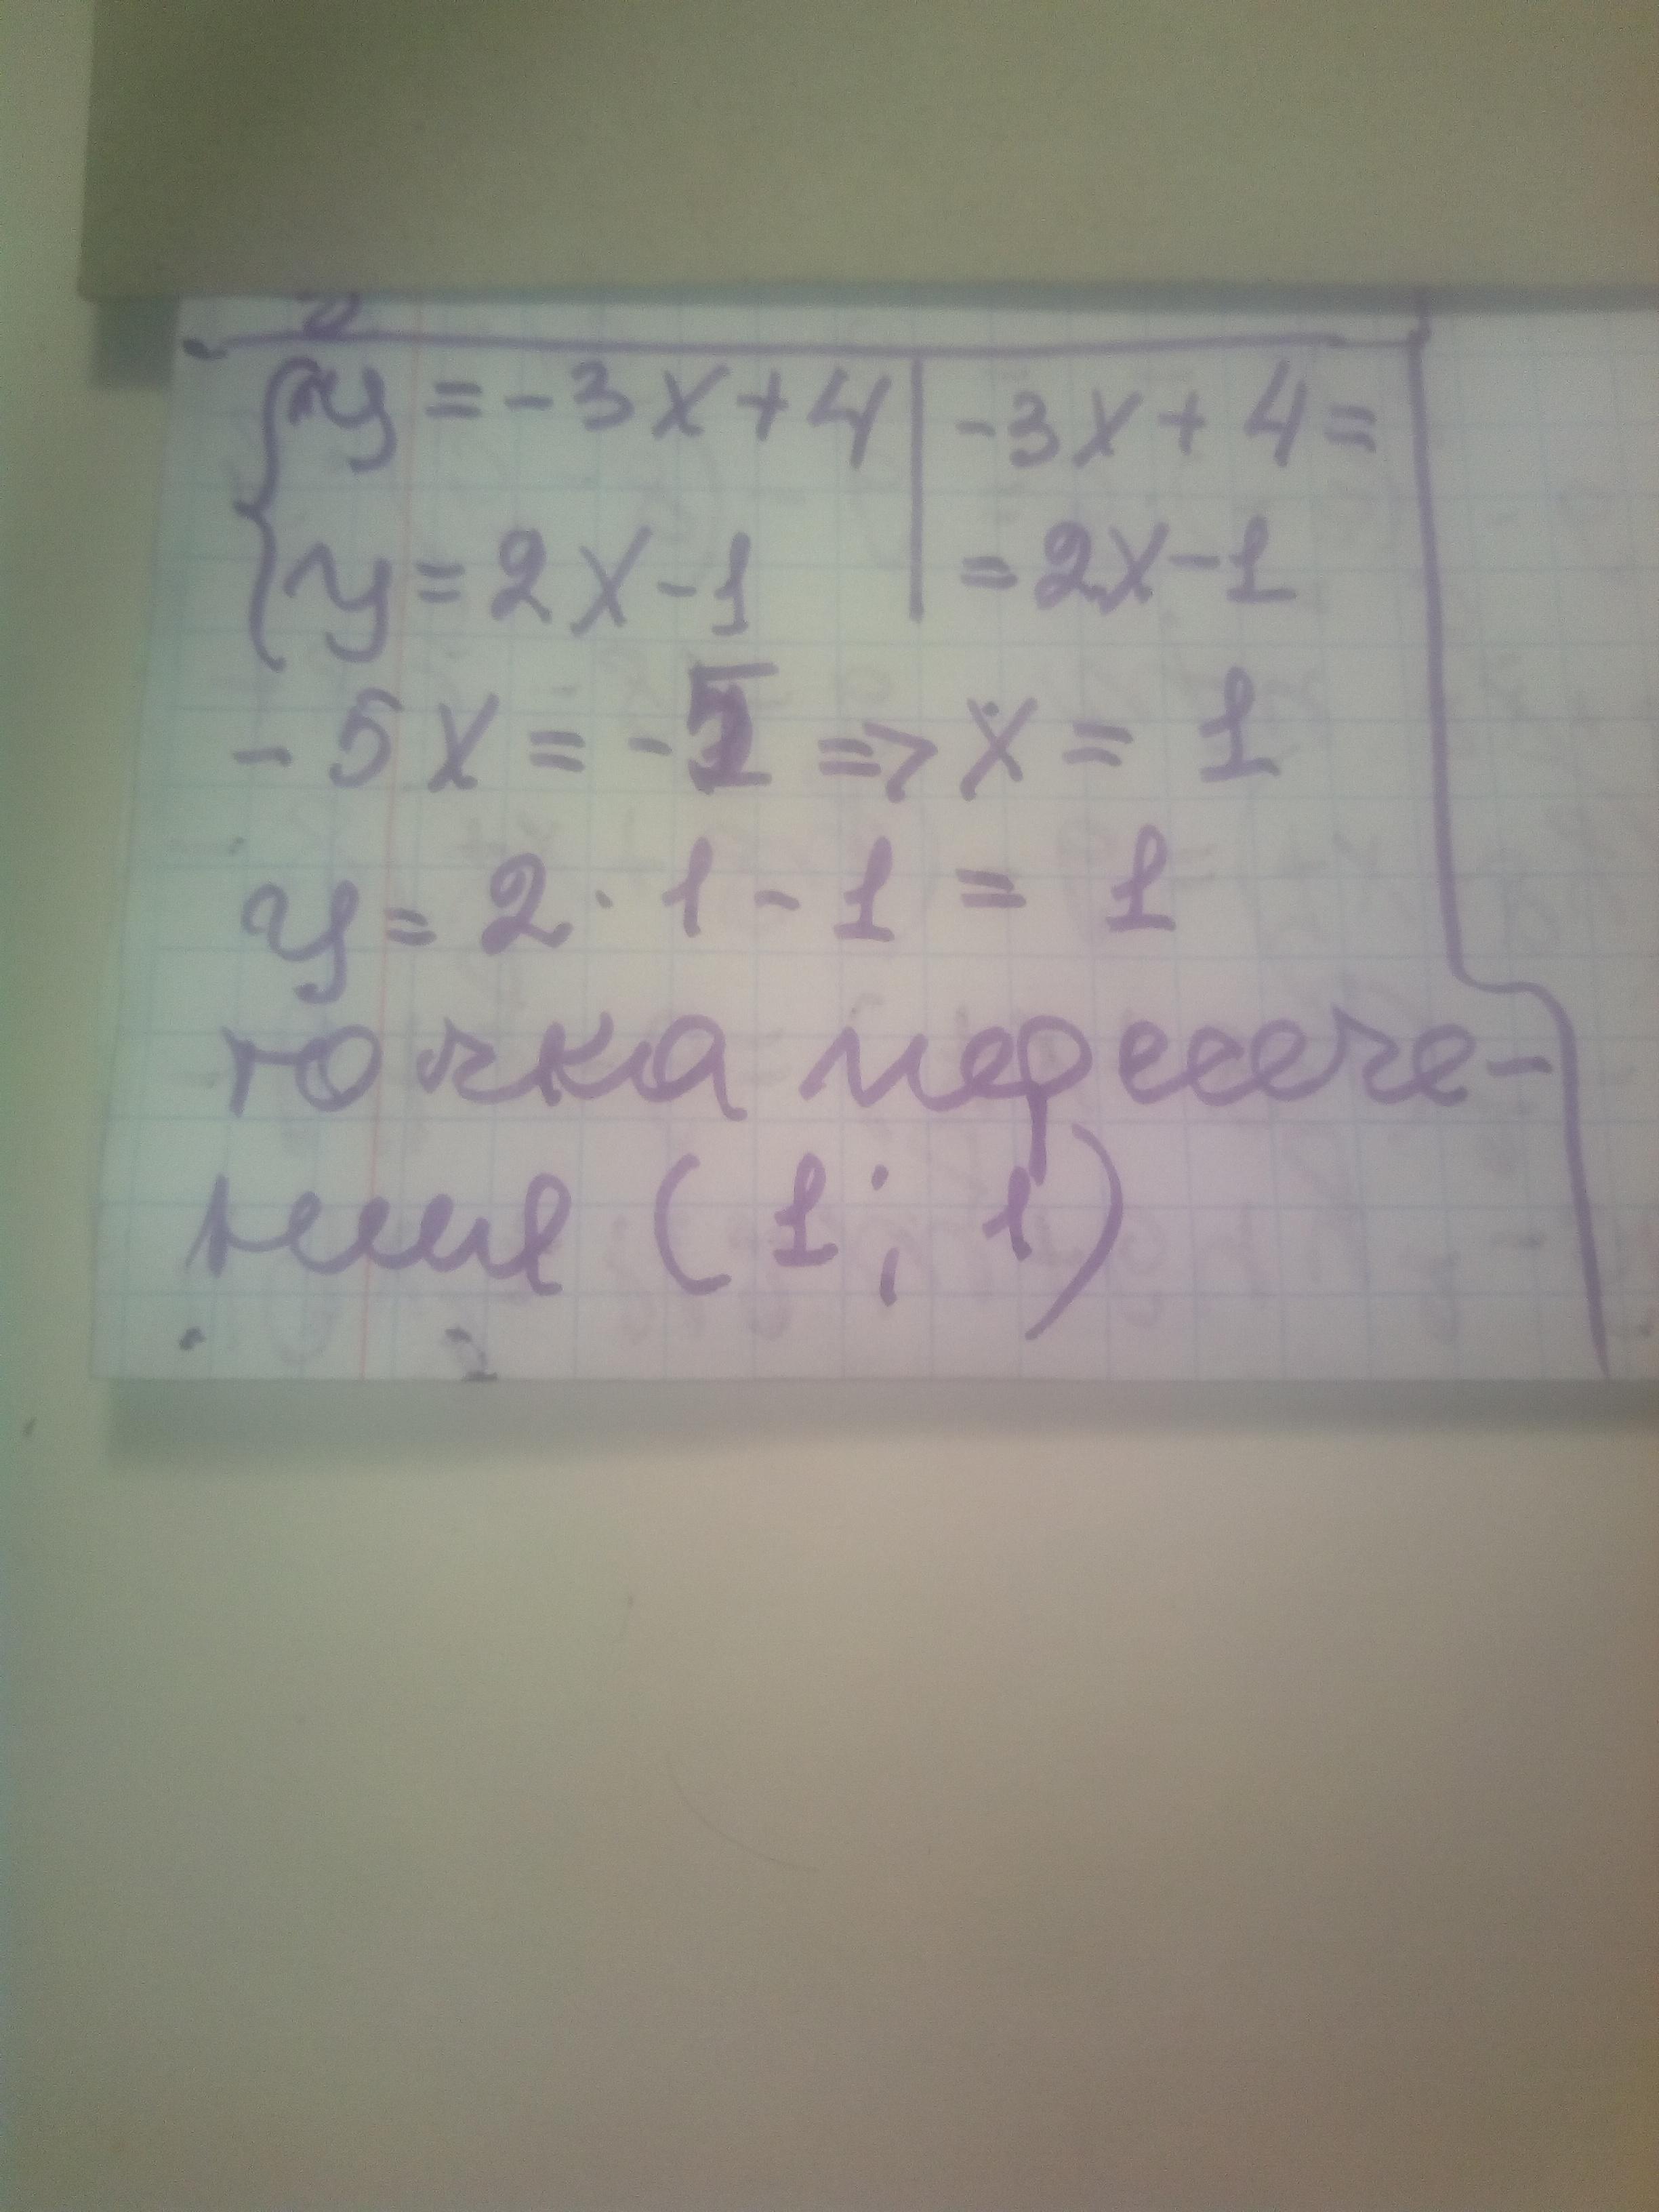 { y = -3x + 4 | -3x + 4 =
{ y = 2x - 1 | = 2x - 1
-5x = -5 => x = 1
y = 2 · 1 - 1 = 1
точка пересече-
ния (1; 1)